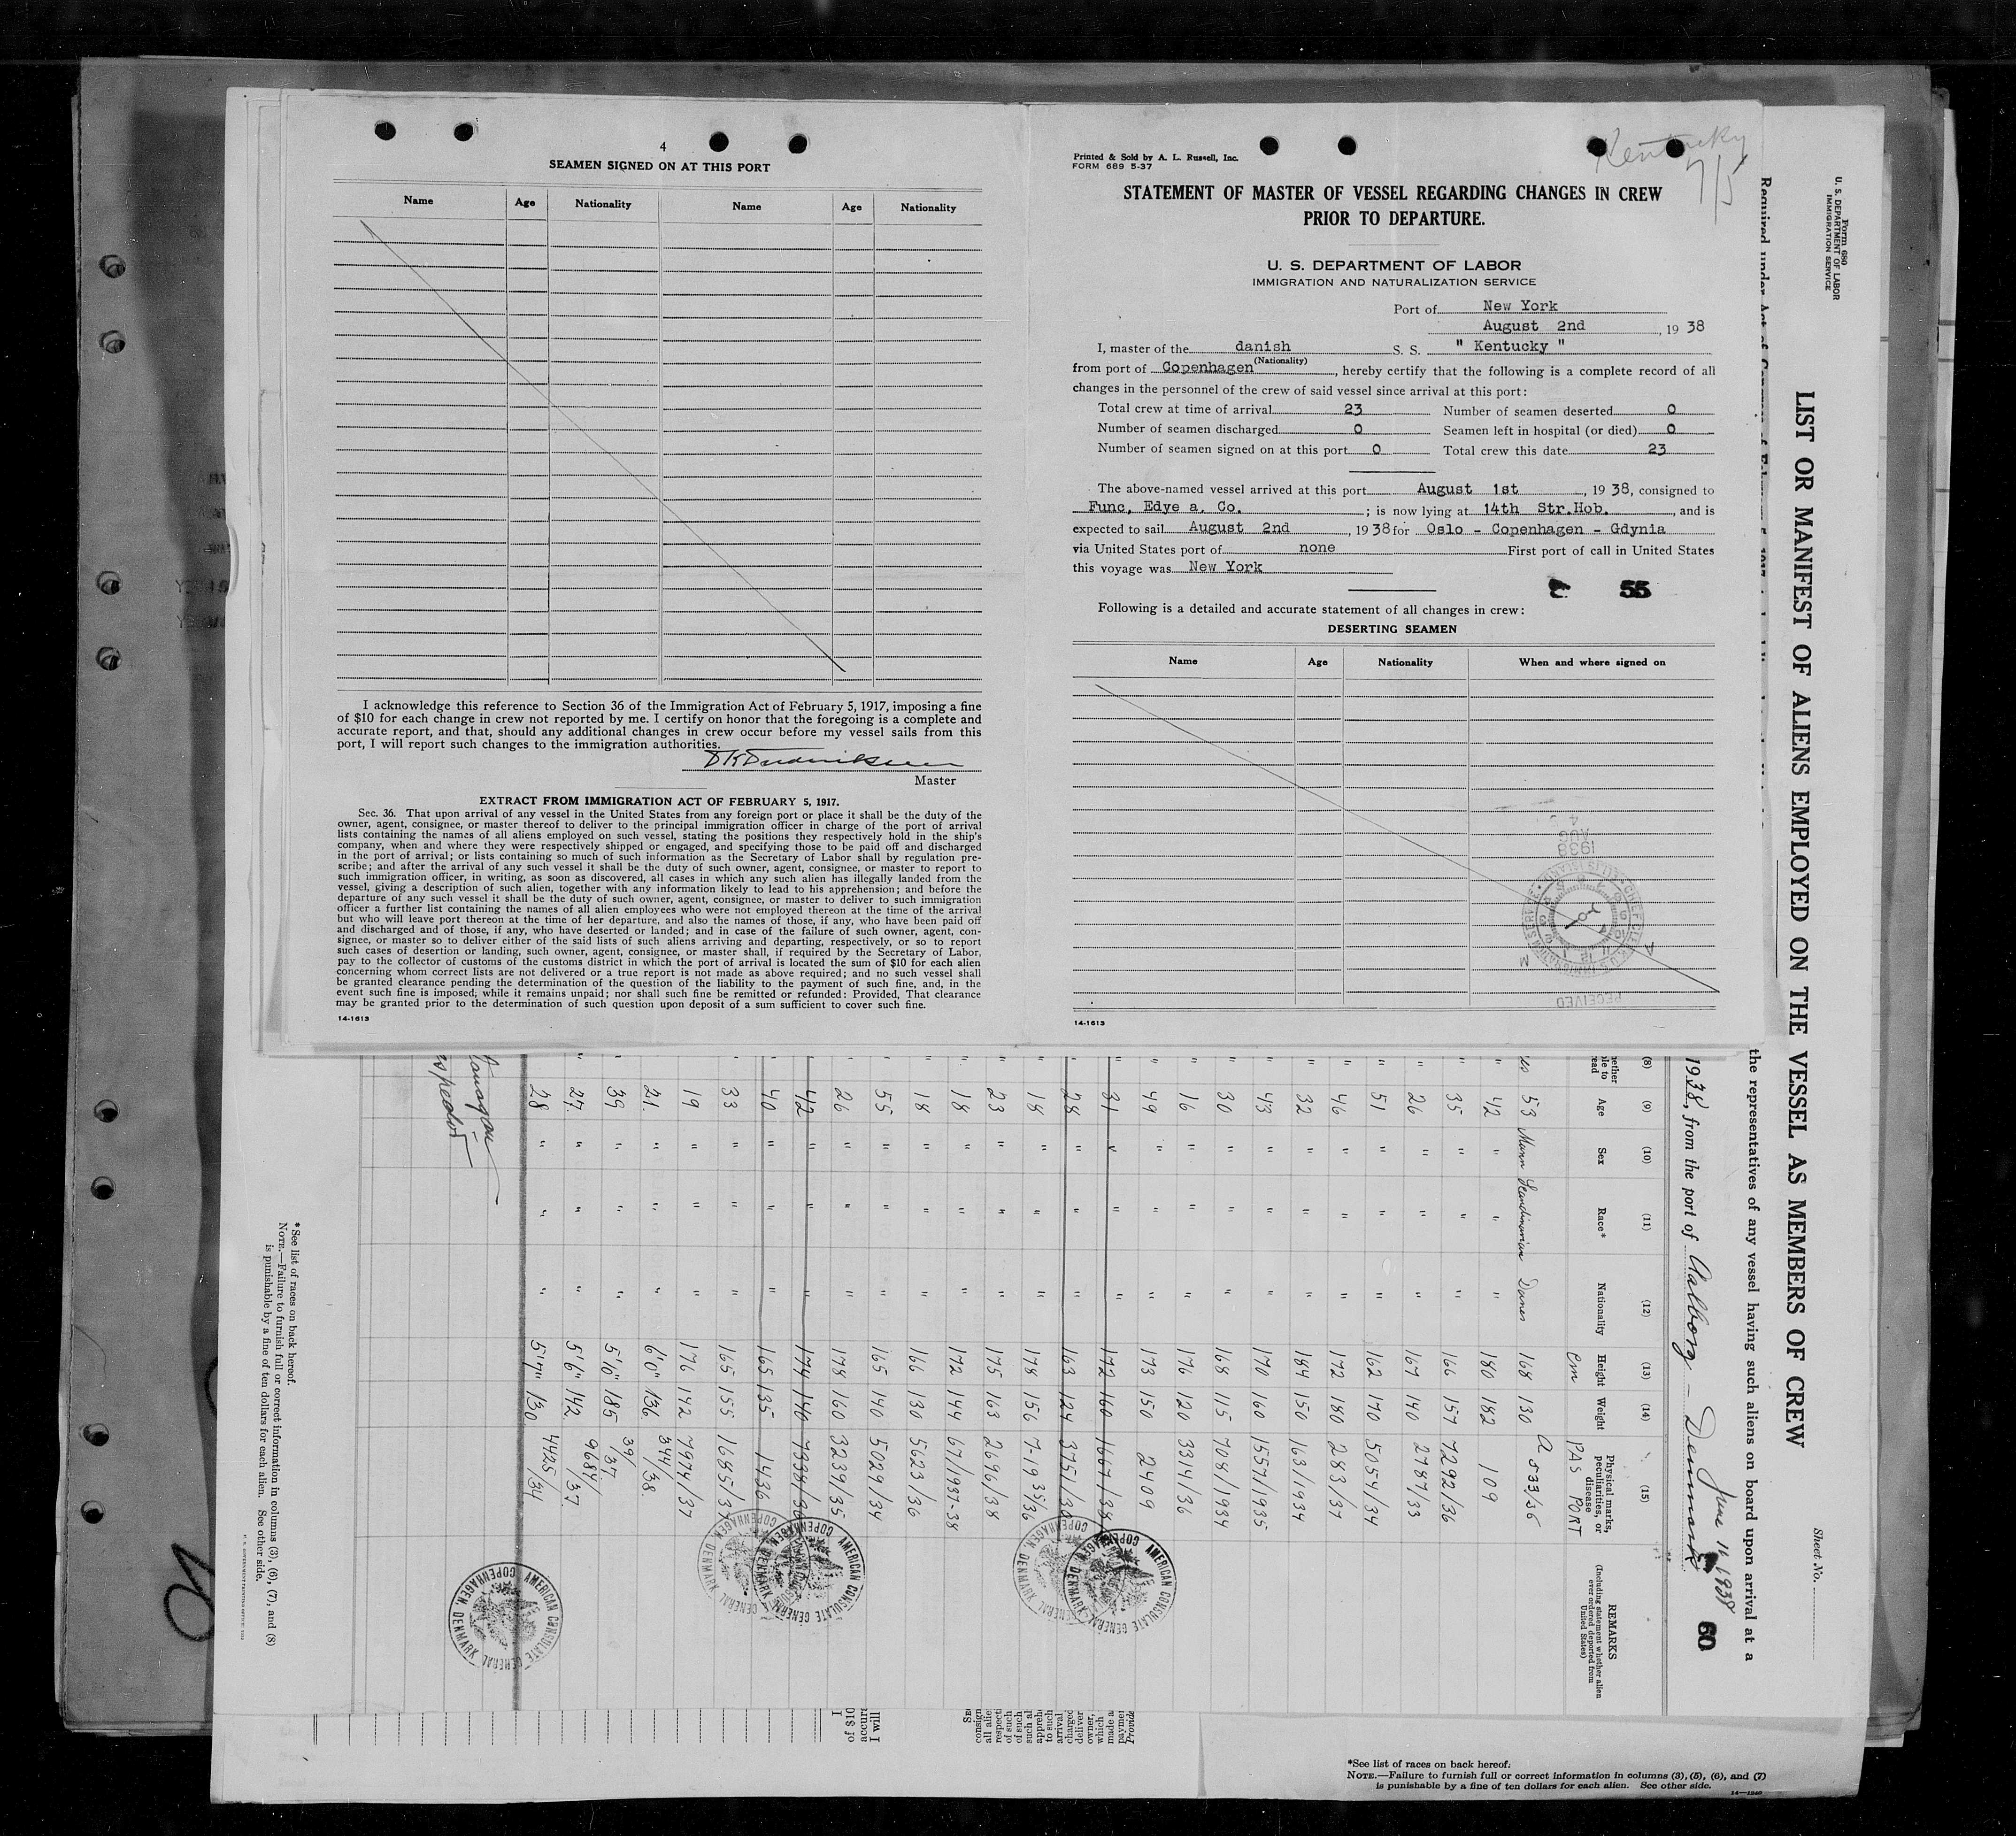 4
SEAMEN SIGNED ON AT THIS PORT
Name Age Nationality Name Age Nationality
I acknowledge this reference to Section 36 of the Immigration Act of February 5, 1917, imposing a fine
of $10 for each change in crew not reported by me. I certify on honor that the foregoing is a complete and
accurate report, and that, should any additional changes in crew occur before my vessel sails from this
port, I will report such changes to the immigration authorities.
Master
EXTRACT FROM IMMIGRATION ACT OF FEBRUARY 5, 1917.
Sec. 36. That upon arrival of any vessel in the United States from any foreign port or place it shall be the duty of the
owner, agent, consignee, or master thereof to deliver to the principal immigration officer in charge of the port of arrival
lists containing the names of all aliens employed on such vessel, stating the positions they respectively hold in the ship's
company, when and where they were respectively shipped or engaged, and specifying those to be paid off and discharged
in the port of arrival; or lists containing so much of such information as the Secretary of Labor shall by regulation pre-
scribe; and after the arrival of any such vessel it shall be the duty of such owner, agent, consignee, or master to report to
such immigration officer, in writing, as soon as discovered, all cases in which any such alien has illegally landed from the
vessel, giving a description of such alien, together with any information likely to lead to his apprehension; and before the
departure of any such vessel it shall be the duty of such owner, agent, consignee, or master to deliver to such immigration
officer a further list containing the names of all alien employees who were not employed thereon at the time of the arrival
but who will leave port thereon at the time of her departure, and also the names of those, if any, who have been paid off
and discharged and of those, if any, who have deserted or landed; and in case of the failure of such owner, agent, con-
signee, or master so to deliver either of the said lists of such aliens arriving and departing, respectively, or so to report
such cases of desertion or landing, such owner, agent, consignee, or master shall, if required by the Secretary of Labor,
pay to the collector of customs of the customs district in which the port of arrival is located the sum of $10 for each alien
concerning whom correct lists are not delivered or a true report is not made as above required; and no such vessel shall
be granted clearance pending the determination of the question of the liability to the payment of such fine, and, in the
event such fine is imposed, while it remains unpaid; nor shall such fine be remitted or refunded: Provided, That clearance
may be granted prior to the determination of such question upon deposit of a sum sufficient to cover such fine.
14-1613
Kentucky
7/5
Printed & Sold by A. L. Russell, Inc.
FORM 689 5-37
STATEMENT OF MASTER OF VESSEL REGARDING CHANGES IN CREW
PRIOR TO DEPARTURE.
U. S. DEPARTMENT OF LABOR
IMMIGRATION AND NATURALIZATION SERVICE
Port of New York
August 2nd, 1938
I, master of the danish S. S. " Kentucky "
(Nationality)
from port of Copenhagen, hereby certify that the following is a complete record of all
changes in the personnel of the crew of said vessel since arrival at this port:
Total crew at time of arrival 23 Number of seamen deserted 0
Number of seamen discharged 0 Seamen left in hospital (or died) 0
Number of seamen signed on at this port 0 Total crew this date 23
The above-named vessel arrived at this port August 1st, 1938, consigned to
Func, Edye a. Co.; is now lying at 14th Str.Hob., and is
expected to sail August 2nd, 1938 for Oslo - Copenhagen - Gdynia
via United States port of none First port of call in United States
this voyage was New York
55
Following is a detailed and accurate statement of all changes in crew:
DESERTING SEAMEN
Name Age Nationality When and where signed on
1938
AUG
4
RECEIVED
14-1613
Form 680
U. S. DEPARTMENT OF LABOR
IMMIGRATION SERVICE
Sheet No.
LIST OR MANIFEST OF ALIENS EMPLOYED ON THE VESSEL AS MEMBERS OF CREW
the representatives of any vessel having such aliens on board upon arrival at a
June 11 1938
1938, from the port of Aalborg - Denmark
60
(8) (9) (10) (11) (12) (13) (14) (15)
Age Sex Race* Nationality Height Weight Physical marks, peculiarities, or disease REMARKS
(Including statement whether alien ever ordered deported from United States)
cm PAS PORT
53 Mann Scandinavian Danes 168 130 a 533/36
42 " " " 180 182 109
35 " " " 166 157 7292/36
26 " " " 167 140 2787/33
51 " " " 162 170 5054/34
46 " " " 172 180 283/37
32 " " " 184 150 163/1934
43 " " " 170 160 1557/1935
30 " " " 168 115 7081/1934
16 " " " 176 120 3314/36
49 " " " 173 150 2409
31 " " " 172 160 1667/38
28 " " " 163 124 3751/
18 " " " 178 156 7-19 35/36
23 " " " 175 163 2696/38
18 " " " 172 144 67/1937-38
18 " " " 166 130 5623/36
55 " " " 165 140 5029/34
26 " " " 178 160 3239/35
42 " " " 174 140 7338/
40 " " " 165 135 1436
33 " " " 165 155 1685/37
19 " " " 176 142 7974/37
21. " " " 6'0" 136 344/38
39 " " " 5'10" 185 39/37
27. " " " 5'6" 142 9684/37
28 " " " 5'7" 130 4425/34
AMERICAN CONSULATE GENERAL
COPENHAGEN, DENMARK
*See list of races on back hereof.
NOTE.—Failure to furnish full or correct information in columns (3), (6), (7), and (8)
is punishable by a fine of ten dollars for each alien. See other side.
I
of $10
accura
I will
*See list of races on back hereof.
NOTE.—Failure to furnish full or correct information in columns (3), (5), (6), and (7)
is punishable by a fine of ten dollars for each alien. See other side.
14—1240